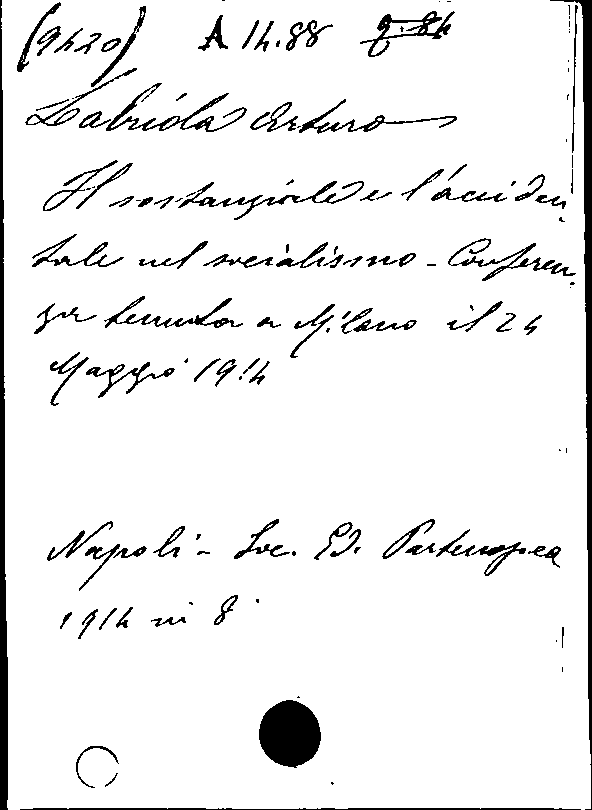 (9420) A 14.88
Labriola Arturo
Il sostanziale e l'acciden-
tale nel socialismo - Conferen-
za tenuta a Milano il 24
Maggio 1914
Napoli - Soc. Ed. Partenopea
1914 in 8°